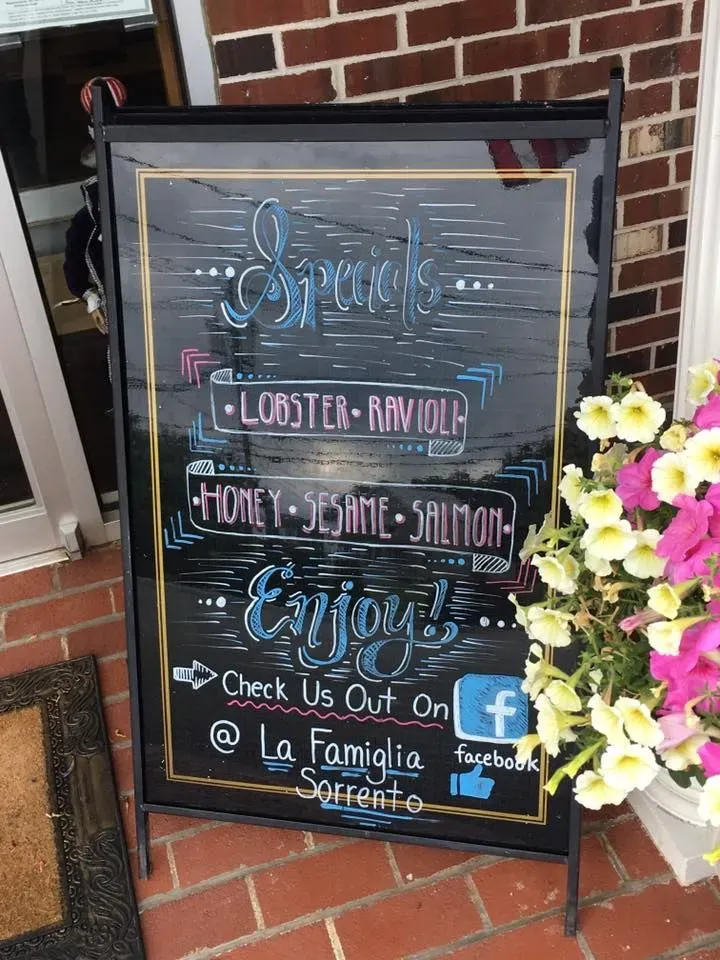 Specials
LOBSTER • RAVIOLI
HONEY • SESAME • SALMON
Enjoy!
Check Us Out On
f
facebook
@ La Famiglia
Sorrento